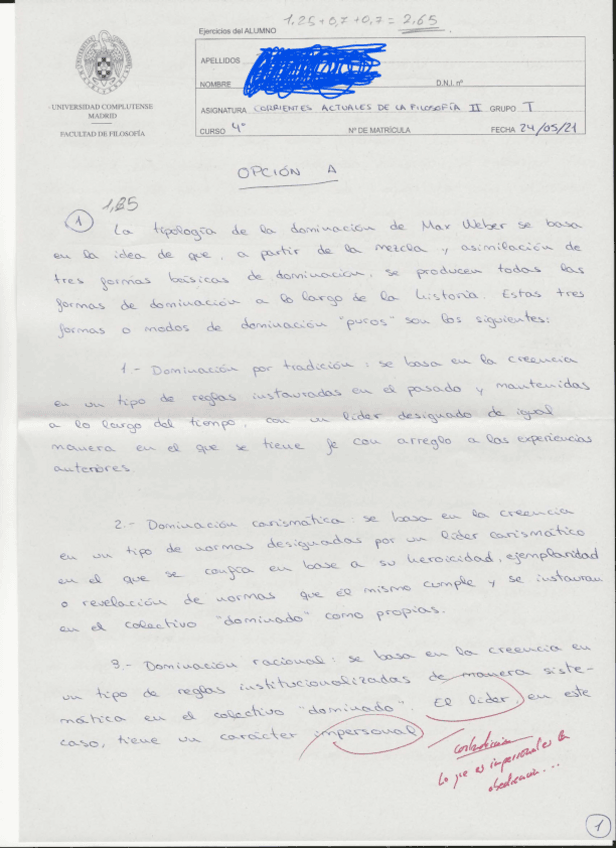 1,25 + 0,7 + 0,7 = 2,65
Ejercicios del ALUMNO
APELLIDOS
NOMBRE D.N.I. nº
ASIGNATURA CORRIENTES ACTUALES DE LA FILOSOFÍA II GRUPO T
CURSO 4º Nº DE MATRÍCULA FECHA 24/05/21
UNIVERSIDAD COMPLUTENSE
MADRID
FACULTAD DE FILOSOFÍA
OPCIÓN A
1,25
1 La tipología de la dominación de Max Weber se basa
en la idea de que, a partir de la mezcla y asimilación de
tres formas básicas de dominación, se producen todas las
formas de dominación a lo largo de la historia. Estas tres
formas o modos de dominación "puros" son los siguientes:
1 - Dominación por tradición: se basa en la creencia
en un tipo de reglas instauradas en el pasado y mantenidas
a lo largo del tiempo, con un líder designado de igual
manera en el que se tiene fe con arreglo a las experiencias
anteriores.
2.- Dominación carismática: se basa en la creencia
en un tipo de normas designadas por un líder carismático
en el que se confía en base a su heroicidad, ejemplaridad
o revelación de normas que él mismo cumple y se instauran
en el colectivo "dominado" como propias.
3.- Dominación racional: se basa en la creencia en
un tipo de reglas institucionalizadas de manera siste-
mática en el colectivo "dominado". El líder, en este
caso, tiene un carácter impersonal
contradicción
Lo que es impersonal es la
obediencia...
1